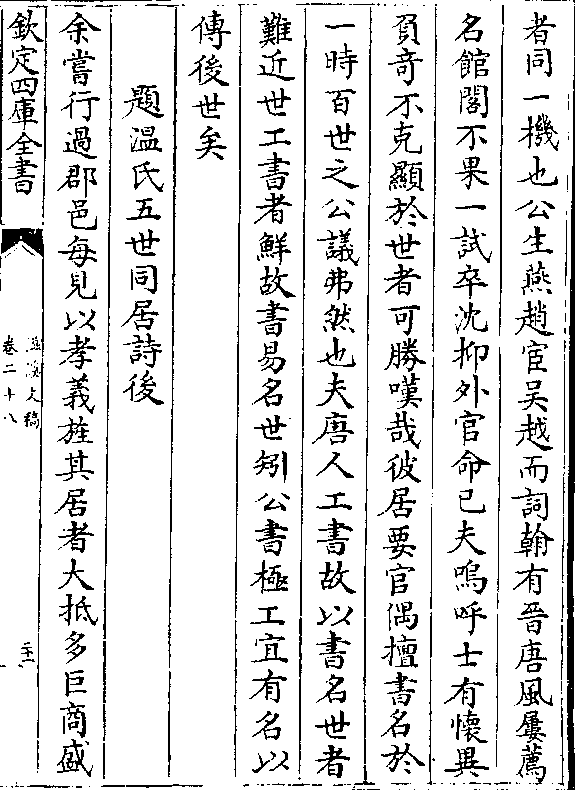 者同一機也公生燕趙宦吴越而詞翰有晉唐風屢薦
名館閣不果一試卒沈抑外官命已夫嗚呼士有懷異
負竒不克顯於世者可勝嘆哉彼居要官偶擅書名於
一時百世之公議弗然也夫唐人工書故以書名世者
難近世工書者鮮故書易名世矧公書極工宜有名以
傳後世矣
題溫氏五世同居詩後
余嘗行過郡邑每見以孝義旌其居者大抵多巨商盛
欽定四庫全書
文稿
卷二十八